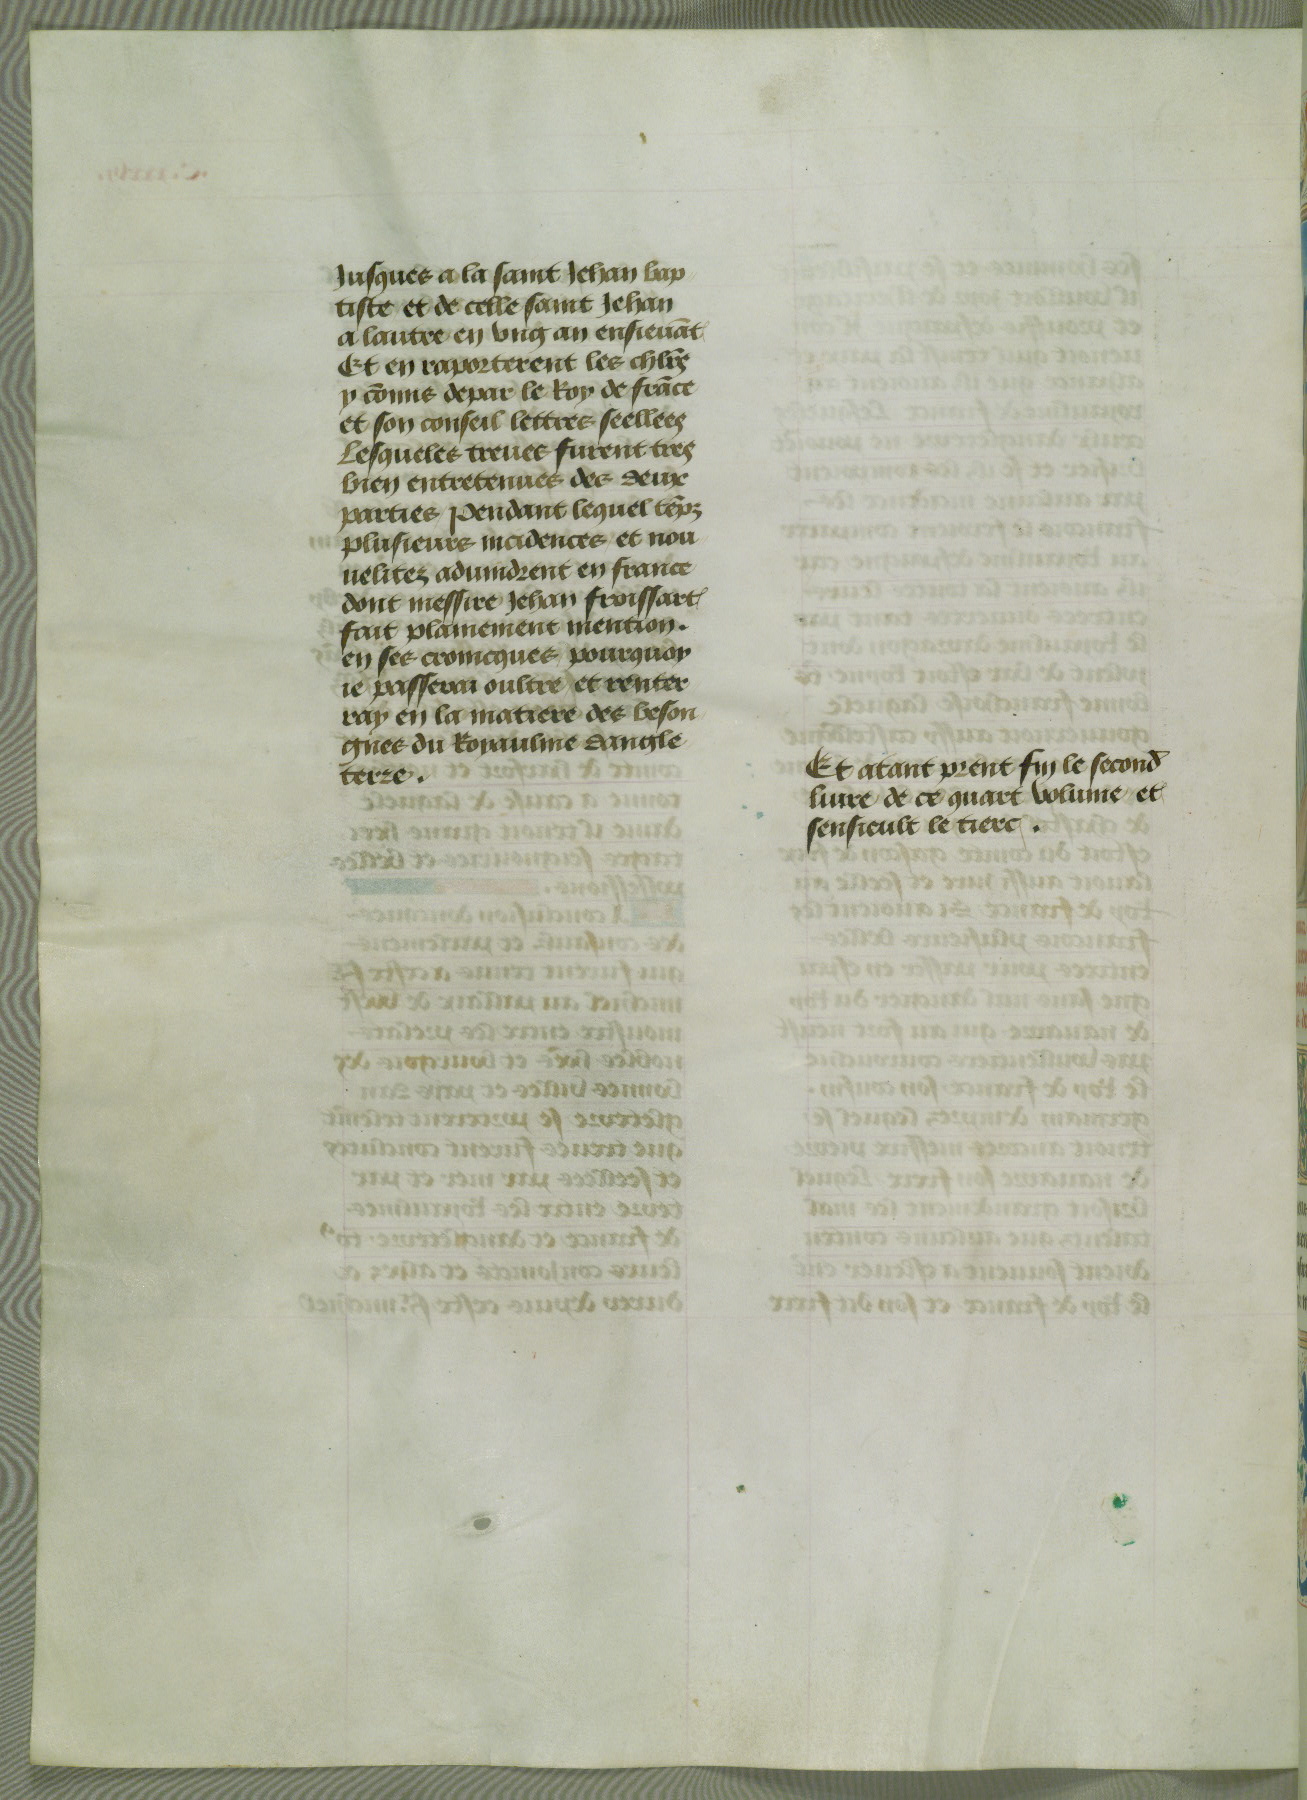 Jusques a la saint Jehan bap
tiste et de celle saint Jehan
a lautre en vng an ensieuāt
Et en raporterent les chlr̄s
y cōmis depar le Roy de frāce
et son conseil lettres seellees
Lesqueles treues furent tres
bien entretenues des deux
parties Pendant lequel tēpz
plusieurs incidences et nou
uelitez aduindrent en france
dont messire Jehan froissart
fait plainement mention.
en ses cronicques pourquoy
ie passerai oultre et renter
ray en la matiere des beson
gnes du Royaulme dangle
terre.
Et atant prent fin le second
liure de ce quart volume et
sensieult le tierc.